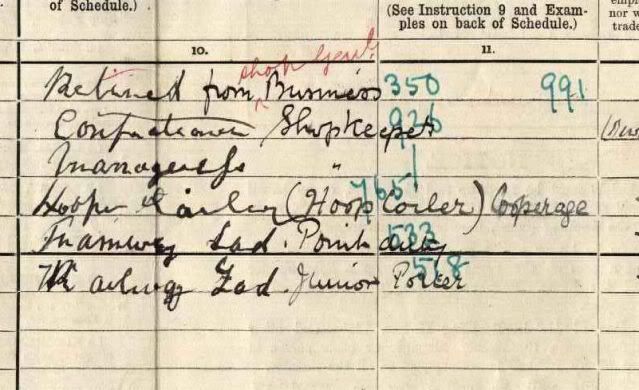 of Schedule.)
(See Instruction 9 and Exam-
ples on back of Schedule.)
nor w
trade
10.
11.
shop Genl.
Retired from Business 350 991
Confectioner Shopkeeper 926
Manageress " 1
Hoop Coiler (Hoop Coiler) Cooperage 765
Tramway Lad. Point 533
Railway Lad. Junior Porter 518